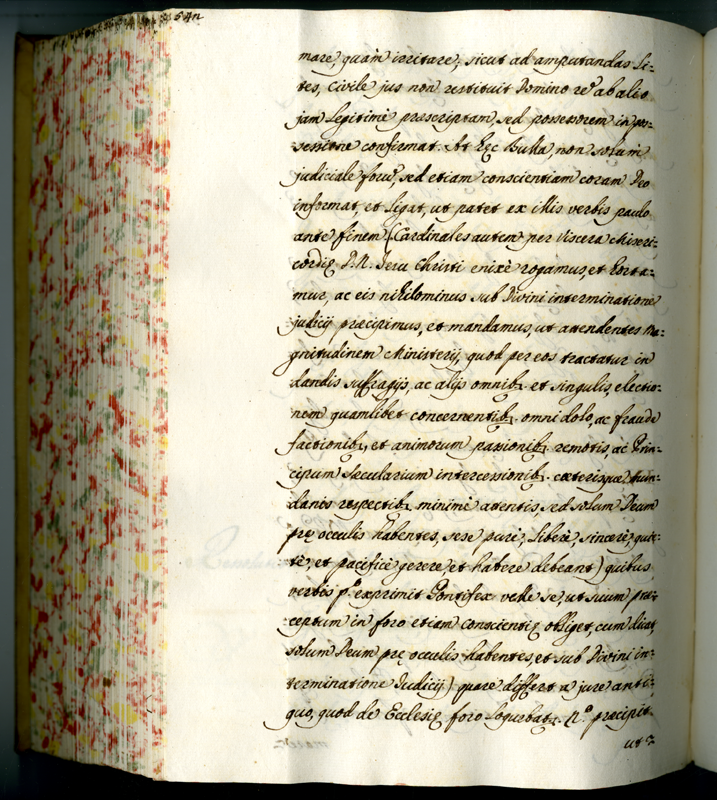 mare, quàm irritare, sicut ad amputandas li=
tes, Civile jus non restituit Domino rẽ ab alio
jam legitimè præscriptam, sed possessorem in pos=
sessione confirmat. At hęc Bulla, non solum
judiciale forũ, sed etiam conscientiam coram Deo
informat, et ligat, ut patet ex illis verbis paulo
ante finem (Cardinales autem per viscera Miseri=
cordię D. N. Jesu Christi enixè rogamus, et horta=
mur, ac eis nihilominus sub Divini interminatione
judicij præcipimus, et mandamus, ut attendentes ma=
gnitudinem Ministerij, quod per eos tractatur in
dandis suffragijs, ac alijs omnibq. et singulis, electio=
nem quamlibet concernentibq. omni dolo, ac fraude
factionibq, et animorum passionibq. remotis, ac Prin=
cipum sæcularium intercessionibq. cæterisque Mun=
danis respectibq. minimè attentis, sed solum Deum
prę occulis habentes, sese purè, liberè, sincerè, quie=
tè, et pacificè gerere et habere debeant) quibus
verbis exprimit Pontifex velle se, ut suum præ=
ceptum in foro etiam conscientię obliget, cum dicat,
solum Deum prę occulis habentes, et sub Divini in=
terminatione Judicij) quare differt a jure anti=
quo, quod de Ecclesię foro loquebatq. N.º præcipit.
ut